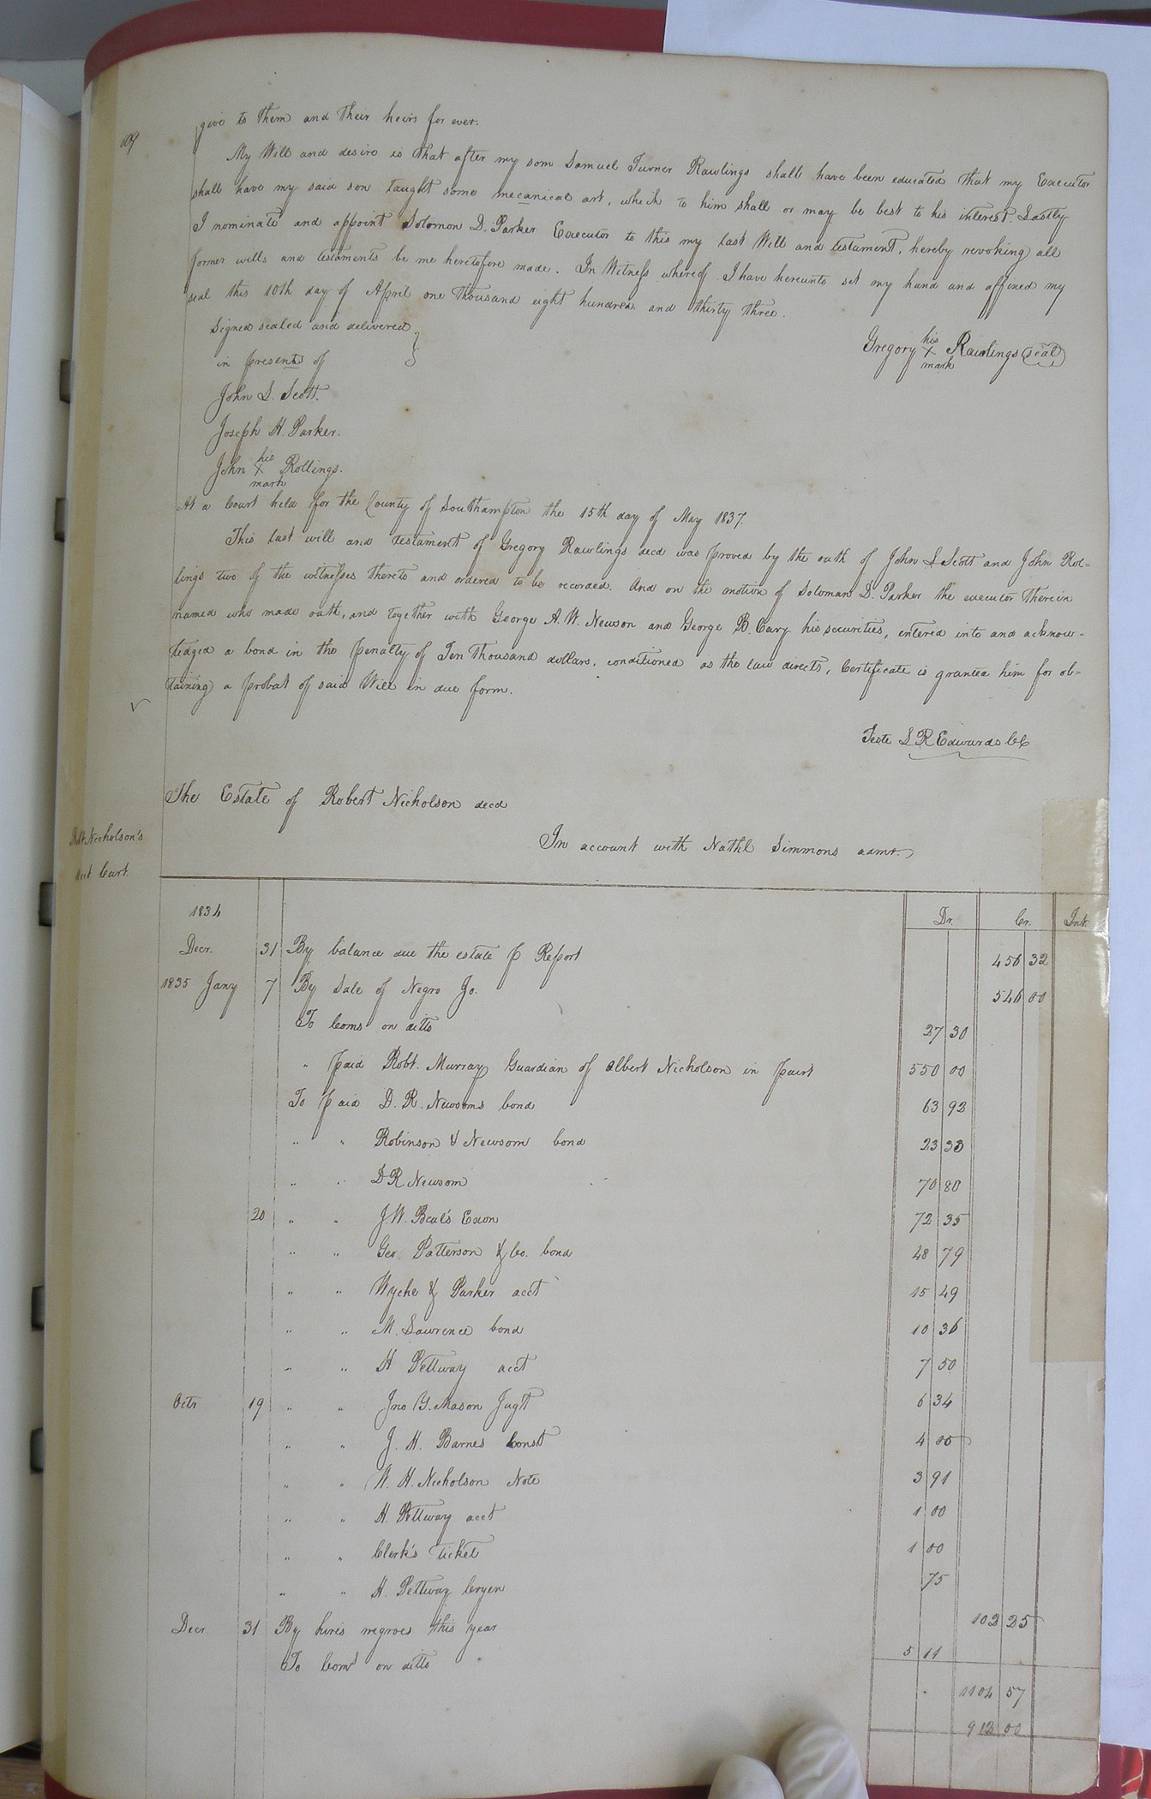 give to them and their heirs for ever.
My Will and desire is that after my son Samuel Turner Rawlings shall have been educated that my Executor
shall have my said son taught some mecanical art, which to him shall or may be best to his interest. Lastly
I nominate and appoint Solomon D. Parker Executor to this my Last Will and testament, hereby revoking all
former wills and testaments be me heretofore made. In Witness whereof I have hereunto set my hand and affixed my
seal this 10th day of April one thousand eight hundred and thirty three.
Signed sealed and delivered
in presents of
Gregory his X mark Rawlings (seal)
John S. Scott.
Joseph H. Parker.
John his X mark Rollings.
At a Court held for the County of Southampton the 15th day of May 1837.
This Last will and testament of Gregory Rawlings decd was proved by the oath of John S Scott and John Rol-
lings two of the witnesses thereto and ordered to be recorded. And on the motion of Soloman D. Parker the executor therein
named who made oath, and together with George A. W. Newsom and George B. Cary his securities, entered into and acknow-
ledged a bond in the penalty of Ten thousand dollars, conditioned as the law directs, Certificate is granted him for ob-
taining a probat of said Will in due form.
Teste L R Edwards CC
The Estate of Robert Nicholson decd
In account with Nathl Simmons admr.
Robt. Nicholson's
Acct Curt.
1834 Dr. Cr. Int.
Decr. 31 By balance due the estate p Report 456 32
1835 Jany 7 By Sale of Negro Jo. 546 00
To Coms on ditto 27 30
" paid Robt. Murray Guardian of Albert Nicholson in part 550 00
To paid D. R. Newsoms bond 63 92
" " Robinson & Newsom bond 23 33
" " D R Newsom 70 80
20 " " J W. Beal's Exon 72 35
" " Geo. Patterson & Co. bond 48 79
" " Wyche & Parker acct 15 49
" " M. Lawrence bond 10 36
" " H Pettway acct 7 50
Octr 19 " " Jno Y. Mason Jugt 6 34
" " J. H. Barnes Const 4 05
" " W. H. Nicholson Note 3 91
" " H. Pettway acct 1 00
" " Clerk's Ticket 1 00
" " H. Pettway Cryer 75
Decr 31 By hires negroes this year 102 25
To Coms on ditto 5 11
1104 57
912 00